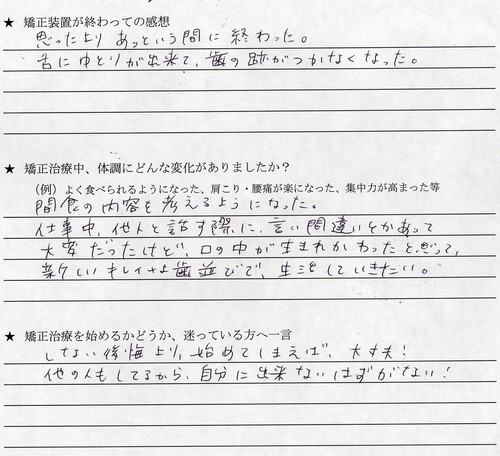 ★ 矯正装置が終わっての感想
思ったより あっという間に 終わった。
舌にゆとりが出来て、歯の跡がつかなくなった。
★ 矯正治療中、体調にどんな変化がありましたか？
（例）よく食べられるようになった、肩こり・腰痛が楽になった、集中力が高まった等
間食の内容を考えるようになった。
仕事中、他人と話す際に、言い間違いとかあって
大変だったけど、口の中が生まれかわったと思って、
新しいキレイな歯並びで、生活していきたい。
★ 矯正治療を始めるかどうか、迷っている方へ一言
しない後悔より、始めてしまえば、大丈夫！
他の人もしてるから、自分に出来ないはずがない！